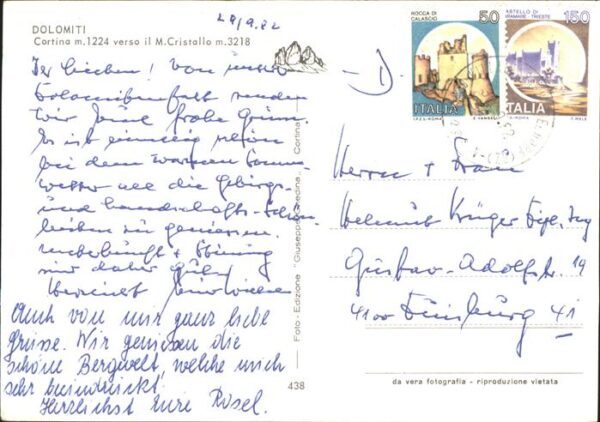 DOLOMITI
Cortina m.1224 verso il M.Cristallo m.3218
28/9.82
Ihr Lieben! Von unserer
Dolomitenfahrt senden
wir Eine frohe Grüsse.
Es ist einmalig schön
bei dem warmen Sonnen-
wetter all die Gebirgs-
und Landschafts-Schön-
heiten zu geniessen.
Unterkunft + Stimmung
sind daher gut
Herzlichst
Auch von mir ganz liebe
Grüsse. Wir genissen die
schöne Bergwelt, welche mich
sehr beeindruckt.
Herzlichst Eure Rosel.
Foto - Edizione - Giuseppe Ghedina - Cortina
438
ROCCA DI
CALASCIO
50
ITALIA
CASTELLO DI
MIRAMARE TRIESTE
150
ITALIA
- D.
Herrn + Frau
Helmut Krüger Dipl. Ing
Gustav-Adolfstr. 19
4100 Duisburg 41
da vera fotografia - riproduzione vietata